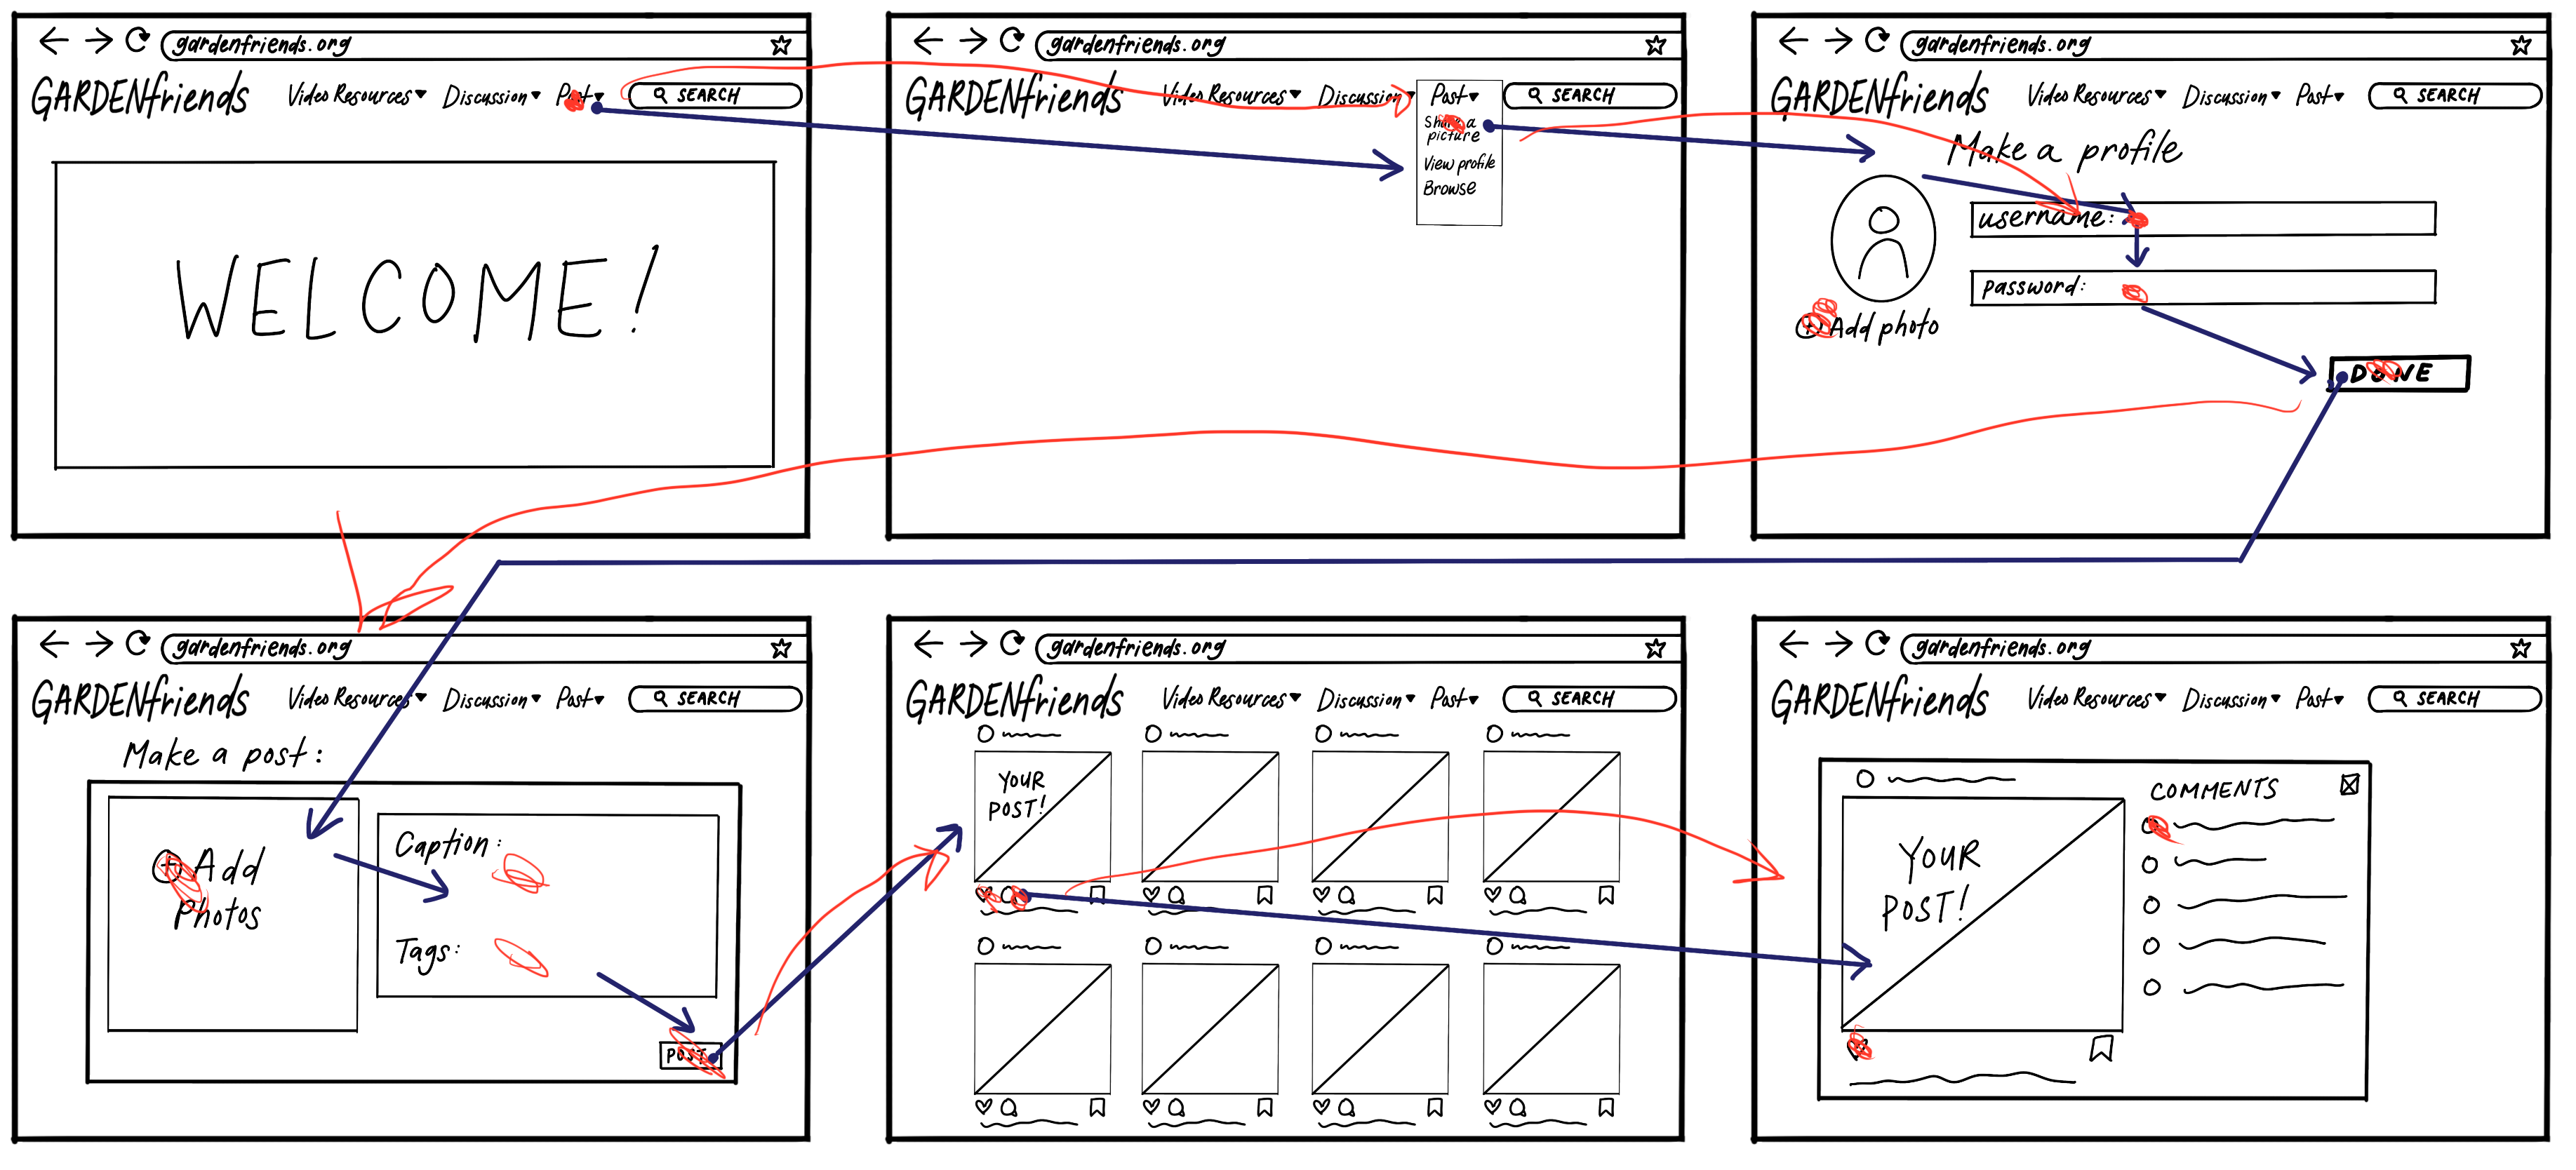 gardenfriends.org
GARDENfriends Video Resources Discussion Post SEARCH
WELCOME!
gardenfriends.org
GARDENfriends Video Resources Discussion Post SEARCH
Share a
picture
View profile
Browse
gardenfriends.org
GARDENfriends Video Resources Discussion Post SEARCH
Make a profile
username:
password:
Add photo
DONE
gardenfriends.org
GARDENfriends Video Resources Discussion Post SEARCH
Make a post:
Add
Photos
Caption:
Tags:
POST
gardenfriends.org
GARDENfriends Video Resources Discussion Post SEARCH
YOUR
POST!
gardenfriends.org
GARDENfriends Video Resources Discussion Post SEARCH
COMMENTS
YOUR
POST!